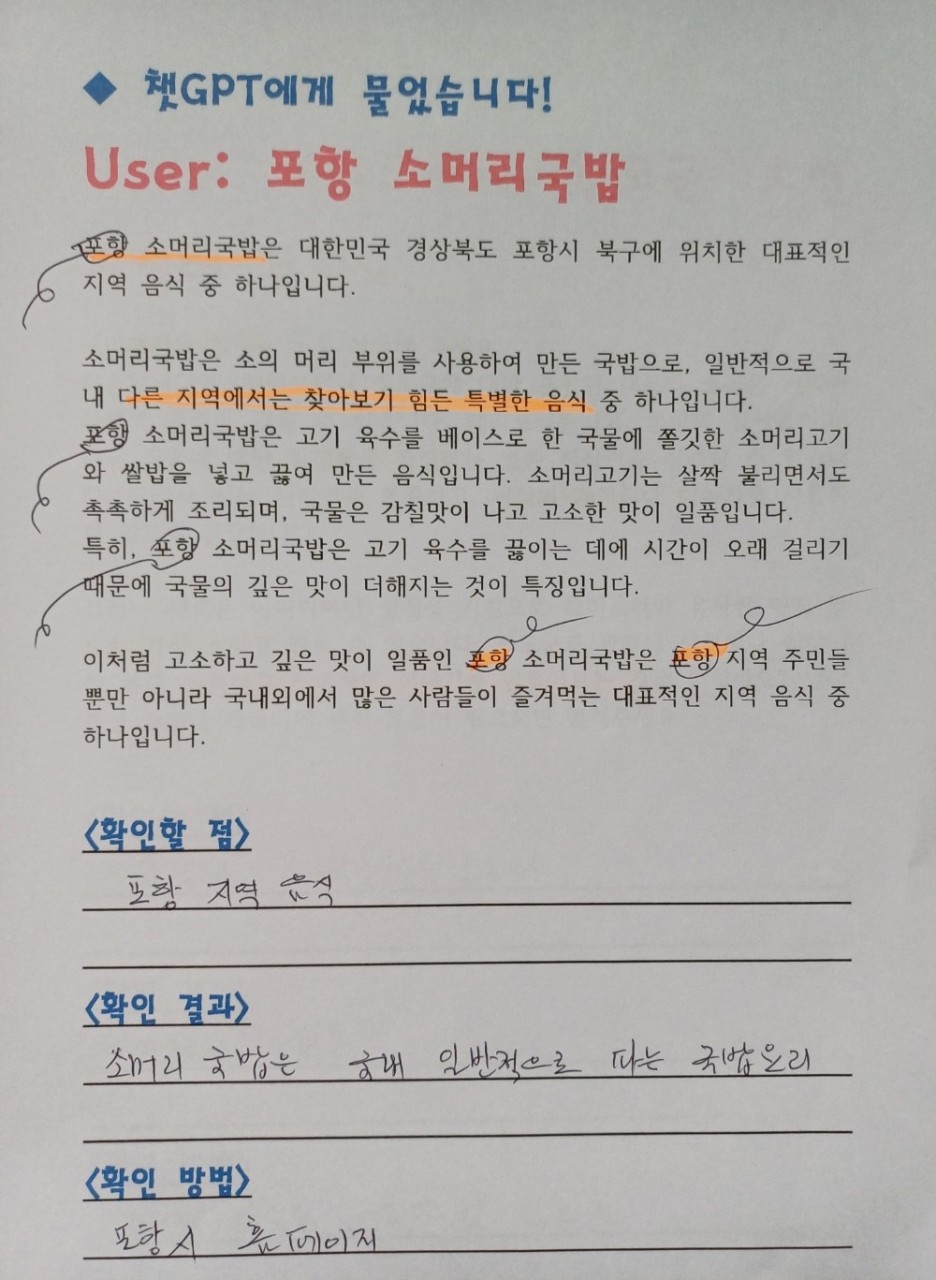 ◆ 챗GPT에게 물었습니다!
User: 포항 소머리국밥
포항 소머리국밥은 대한민국 경상북도 포항시 북구에 위치한 대표적인
지역 음식 중 하나입니다.
소머리국밥은 소의 머리 부위를 사용하여 만든 국밥으로, 일반적으로 국
내 다른 지역에서는 찾아보기 힘든 특별한 음식 중 하나입니다.
포항 소머리국밥은 고기 육수를 베이스로 한 국물에 쫄깃한 소머리고기
와 쌀밥을 넣고 끓여 만든 음식입니다. 소머리고기는 살짝 불리면서도
촉촉하게 조리되며, 국물은 감칠맛이 나고 고소한 맛이 일품입니다.
특히, 포항 소머리국밥은 고기 육수를 끓이는 데에 시간이 오래 걸리기
때문에 국물의 깊은 맛이 더해지는 것이 특징입니다.
이처럼 고소하고 깊은 맛이 일품인 포항 소머리국밥은 포항 지역 주민들
뿐만 아니라 국내외에서 많은 사람들이 즐겨먹는 대표적인 지역 음식 중
하나입니다.
<확인할 점>
포항 지역 음식
<확인 결과>
소머리 국밥은 국내 일반적으로 파는 국밥요리
<확인 방법>
포항시 홈페이지